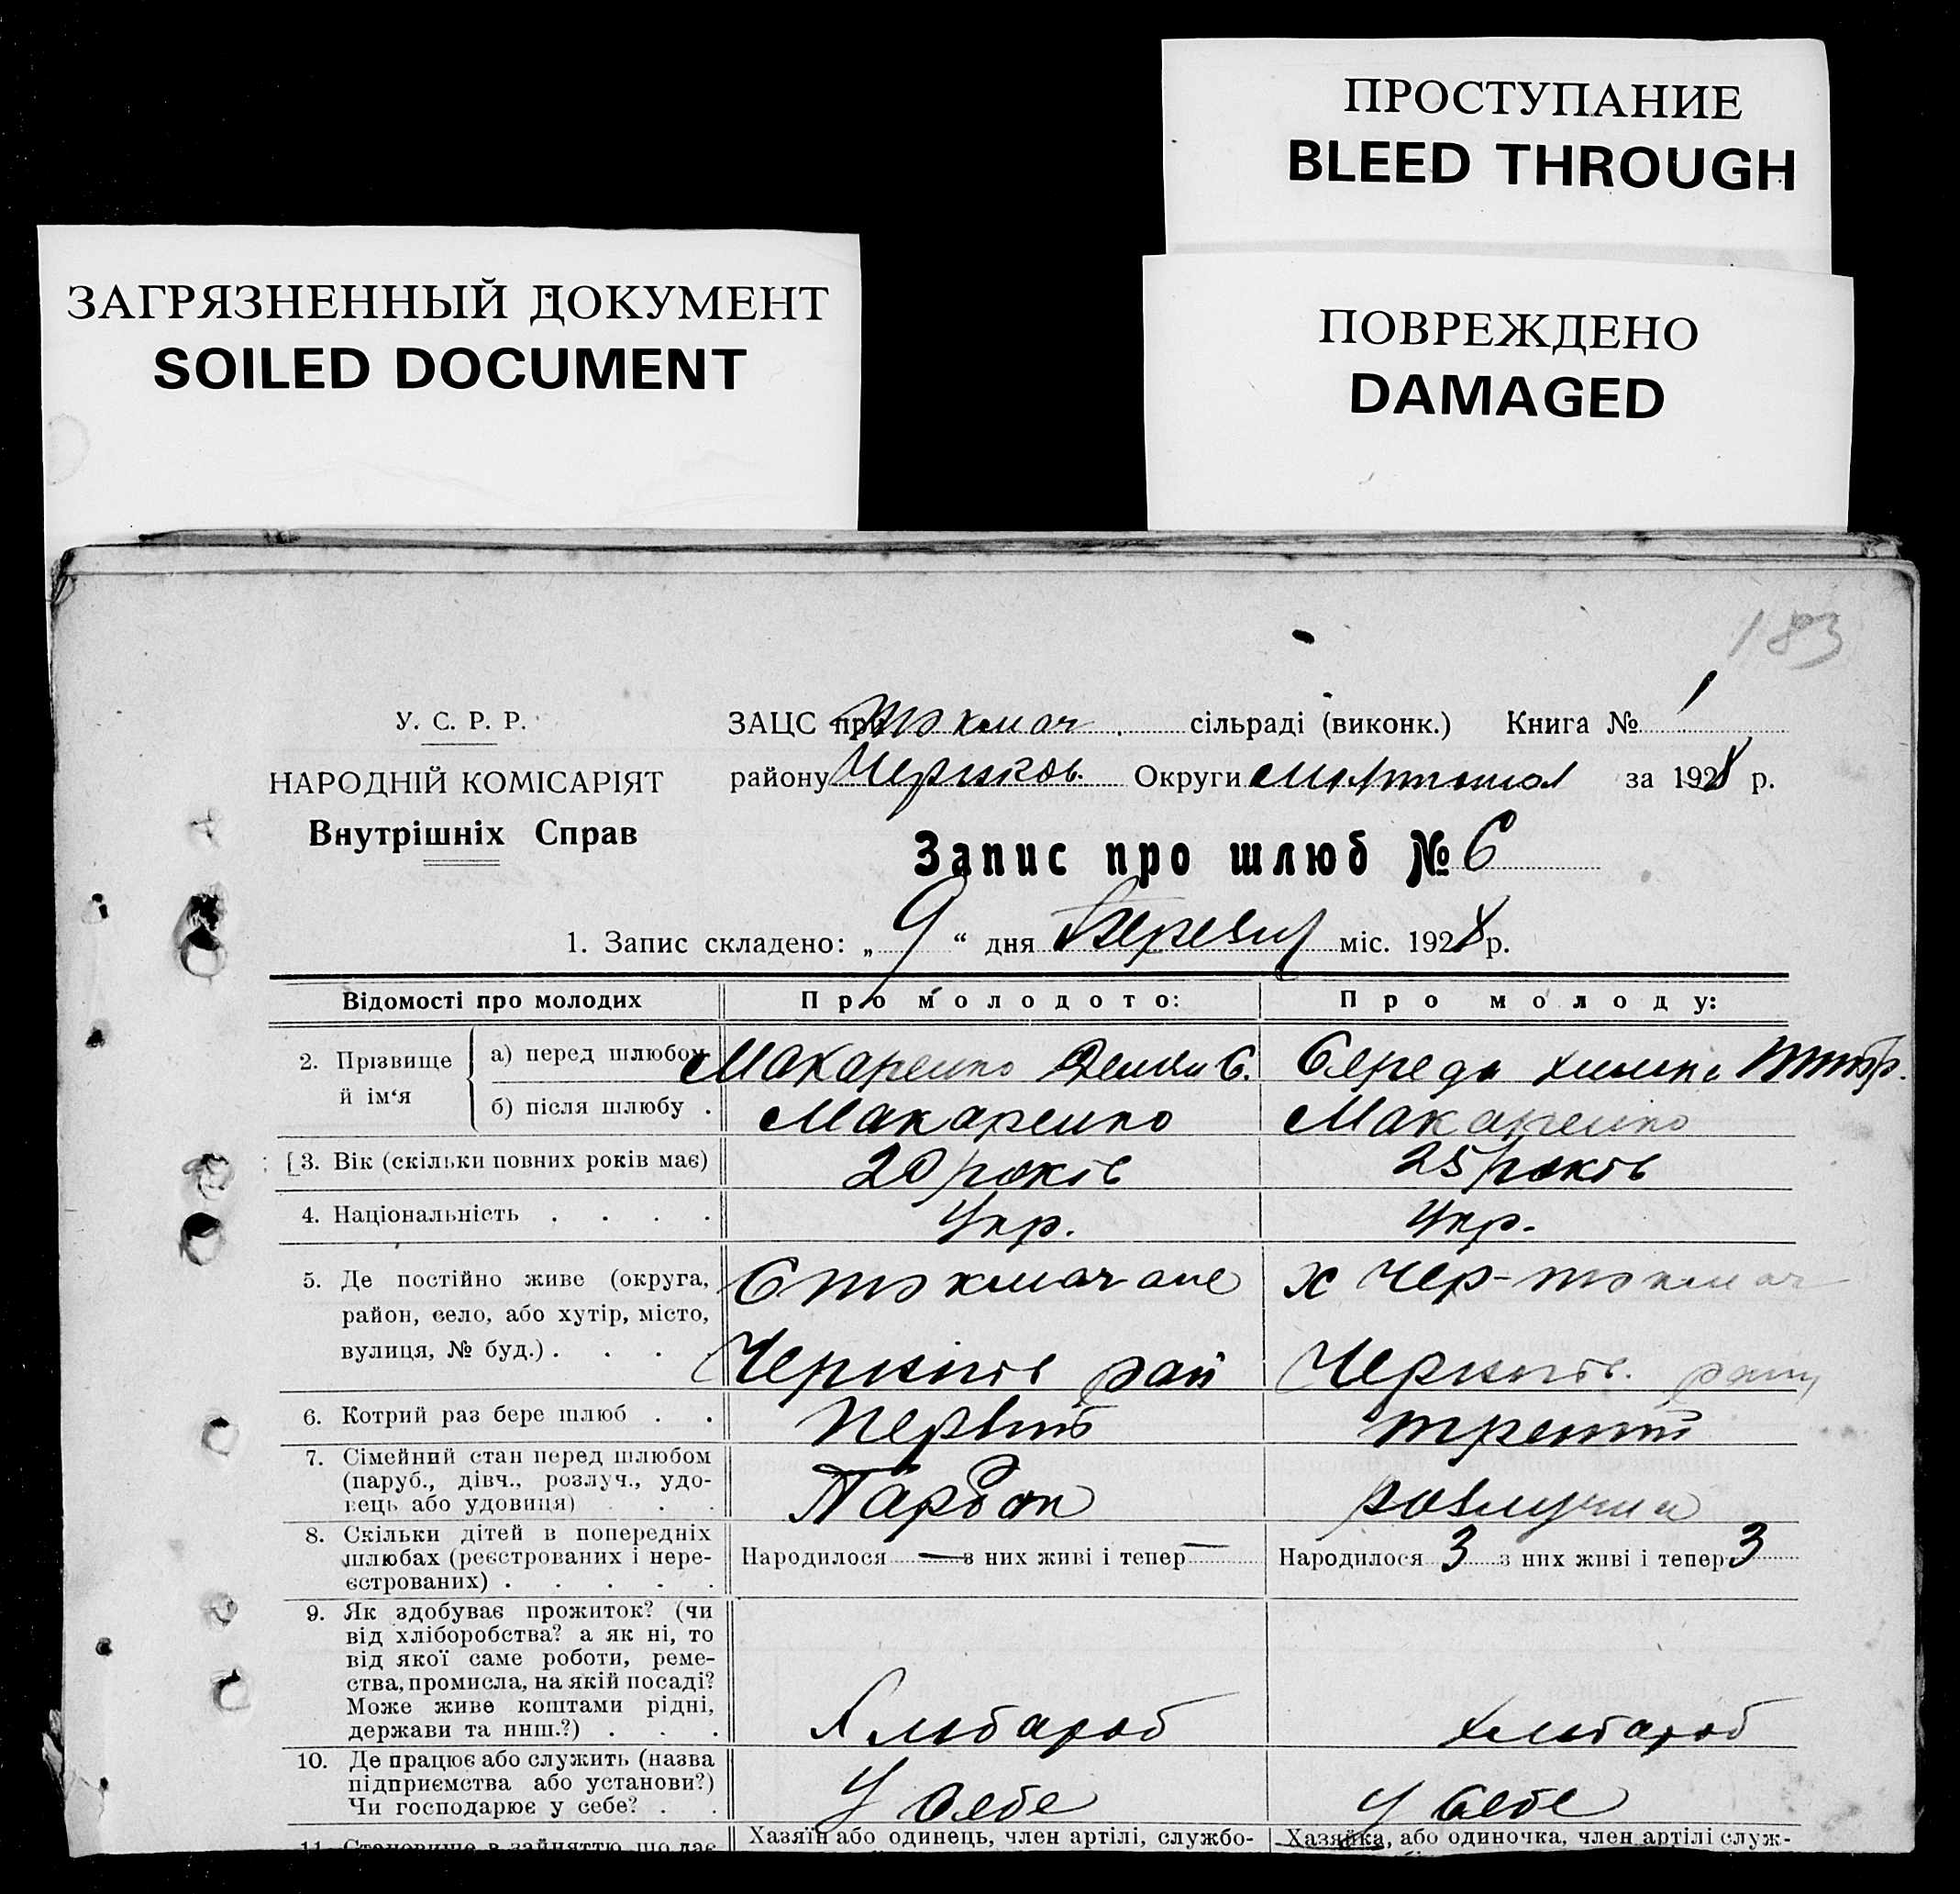 ПРОСТУПАНИЕ
BLEED THROUGH
ЗАГРЯЗНЕННЫЙ ДОКУМЕНТ
SOILED DOCUMENT
ПОВРЕЖДЕНО
DAMAGED
183
У. С. Р. Р.
НАРОДНІЙ КОМІСАРІЯТ
Внутрішніх Справ
ЗАЦС при Токмач. сільраді (виконк.) Книга № 1
району Черняхов. Округи за 1928 р.
Запис про шлюб № 6
1. Запис складено: „ 9 “ дня міс. 1928 р.
Відомості про молодих
Про молодого:
Про молоду:
2. Прізвище й ім‘я
а) перед шлюбом
Макаренко Демян С.
Середа
б) після шлюбу .
Макаренко
Макаренко
3. Вік (скільки повних років має)
20 років
25 років
4. Національність . . . .
Укр.
Укр.
5. Де постійно живе (округа,
район, село, або хутір, місто,
вулиця, № буд.) . . . .
рай
х Чер-токмач
6. Котрий раз бере шлюб . .
Первий
третий
7. Сімейний стан перед шлюбом
(паруб., дівч., розлуч., удо-
вець або удовиця) . . .
Парубок
розлучена
8. Скільки дітей в попередніх
шлюбах (реєстрованих і нере-
єстрованих) . . . . .
Народилося — з них живі і тепер —
Народилося 3 з них живі і тепер 3
9. Як здобуває прожиток? (чи
від хліборобства? а як ні, то
від якої саме роботи, реме-
ства, промисла, на якій посаді?
Може живе коштами рідні,
держави та инш.?) . . .
Хлібароб
хлібароб
10. Де працює або служить (назва
підприємства або установи?)
Чи господарює у себе? . .
У себе
у себе
11. Становище в зайняттю, що дає
Хазяїн або одинець, член артілі, службо-
Хазяйка, або одиночка, член артілі служ-